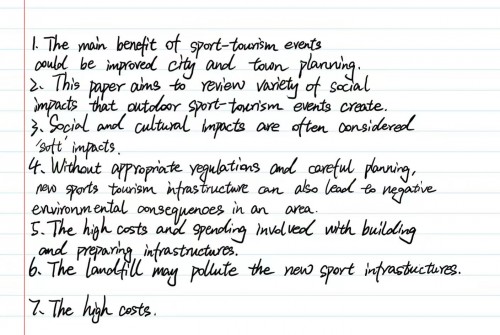 1. The main benefit of sport-tourism events
could be improved city and town planning.
2. This paper aims to review variety of social
impacts that outdoor sport-tourism events create.
3. Social and cultural impacts are often considered
'soft' impacts.
4. Without appropriate regulations and careful planning,
new sports tourism infrastructure can also lead to negative
environmental consequences in an area.
5. The high costs and spending involved with building
and preparing infrastructures.
6. The landfill may pollute the new sport infrastuctures.
7. The high costs.